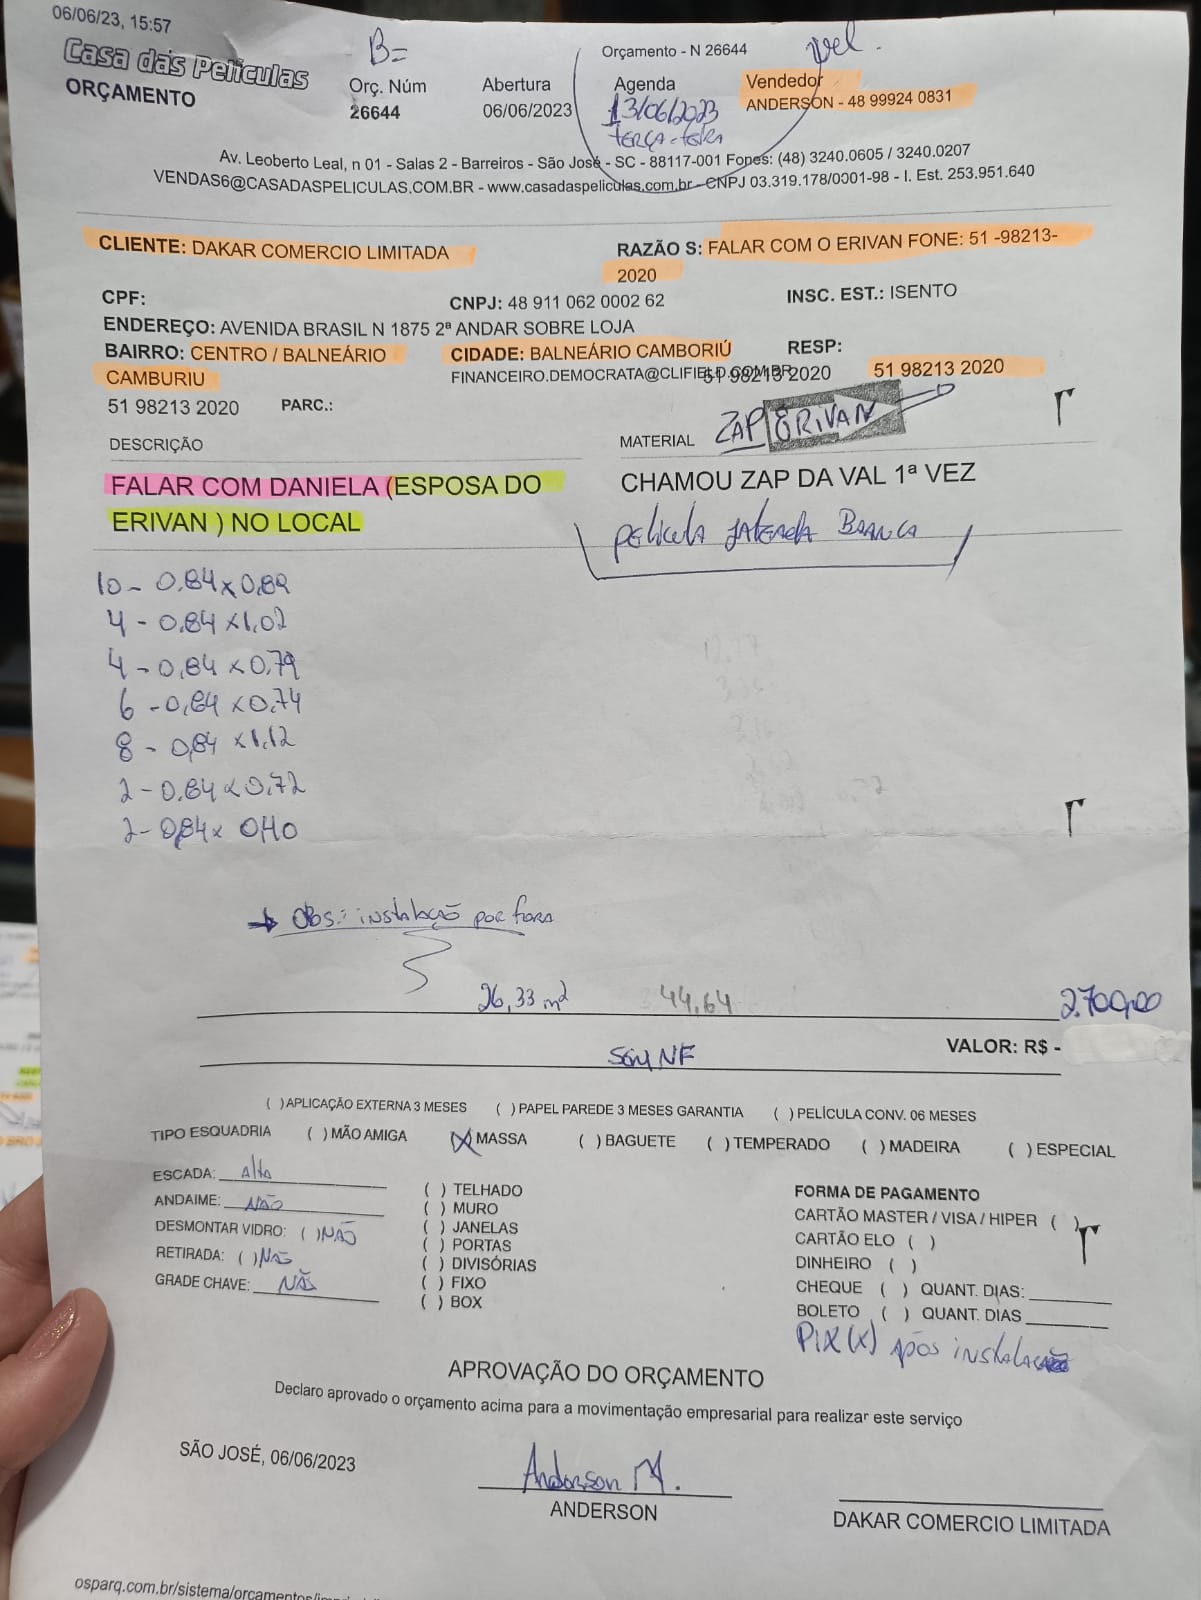 06/06/23, 15:57
Casa das Películas
ORÇAMENTO
B=
Orçamento - N 26644
Orç. Núm
26644
Abertura
06/06/2023
Agenda
13/06/2023
TERÇA-FEIRA
Vendedor
ANDERSON - 48 99924 0831
Av. Leoberto Leal, n 01 - Salas 2 - Barreiros - São José - SC - 88117-001 Fones: (48) 3240.0605 / 3240.0207
VENDAS6@CASADASPELICULAS.COM.BR - www.casadaspeliculas.com.br - CNPJ 03.319.178/0001-98 - I. Est. 253.951.640
CLIENTE: DAKAR COMERCIO LIMITADA
RAZÃO S: FALAR COM O ERIVAN FONE: 51 -98213-
2020
CPF:
CNPJ: 48 911 062 0002 62
INSC. EST.: ISENTO
ENDEREÇO: AVENIDA BRASIL N 1875 2ª ANDAR SOBRE LOJA
BAIRRO: CENTRO / BALNEÁRIO
CAMBURIU
CIDADE: BALNEÁRIO CAMBORIÚ
RESP:
FINANCEIRO.DEMOCRATA@CLIFIELD.COM.BR
51 98213 2020
51 98213 2020
51 98213 2020
PARC.:
ZAP ERIVAN
DESCRIÇÃO
MATERIAL
FALAR COM DANIELA (ESPOSA DO
ERIVAN ) NO LOCAL
CHAMOU ZAP DA VAL 1ª VEZ
película jateada Branca
10 - 0,84 x 0,89
4 - 0,84 x 1,02
4 - 0,84 x 0,79
6 - 0,84 x 0,74
8 - 0,84 x 1,12
2 - 0,84 x 0,72
2 - 0,84 x 0,40
→ Obs: instalação por fora
26,33 m²
44,64
2.700,00
VALOR: R$ -
Sem NF
( )APLICAÇÃO EXTERNA 3 MESES ( ) PAPEL PAREDE 3 MESES GARANTIA ( ) PELÍCULA CONV. 06 MESES
TIPO ESQUADRIA ( ) MÃO AMIGA (X) MASSA ( ) BAGUETE ( ) TEMPERADO ( ) MADEIRA ( ) ESPECIAL
ESCADA: Alta
ANDAIME: NÃO
DESMONTAR VIDRO: ( ) NÃO
RETIRADA: ( ) NÃO
GRADE CHAVE: NÃO
( ) TELHADO
( ) MURO
( ) JANELAS
( ) PORTAS
( ) DIVISÓRIAS
( ) FIXO
( ) BOX
FORMA DE PAGAMENTO
CARTÃO MASTER / VISA / HIPER ( )
CARTÃO ELO ( )
DINHEIRO ( )
CHEQUE ( ) QUANT. DIAS:
BOLETO ( ) QUANT. DIAS
PIX (X) após instalação
APROVAÇÃO DO ORÇAMENTO
Declaro aprovado o orçamento acima para a movimentação empresarial para realizar este serviço
SÃO JOSÉ, 06/06/2023
Anderson M.
ANDERSON
DAKAR COMERCIO LIMITADA